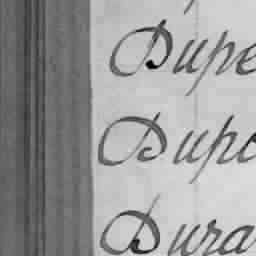 Dupe
Dupo
Dura